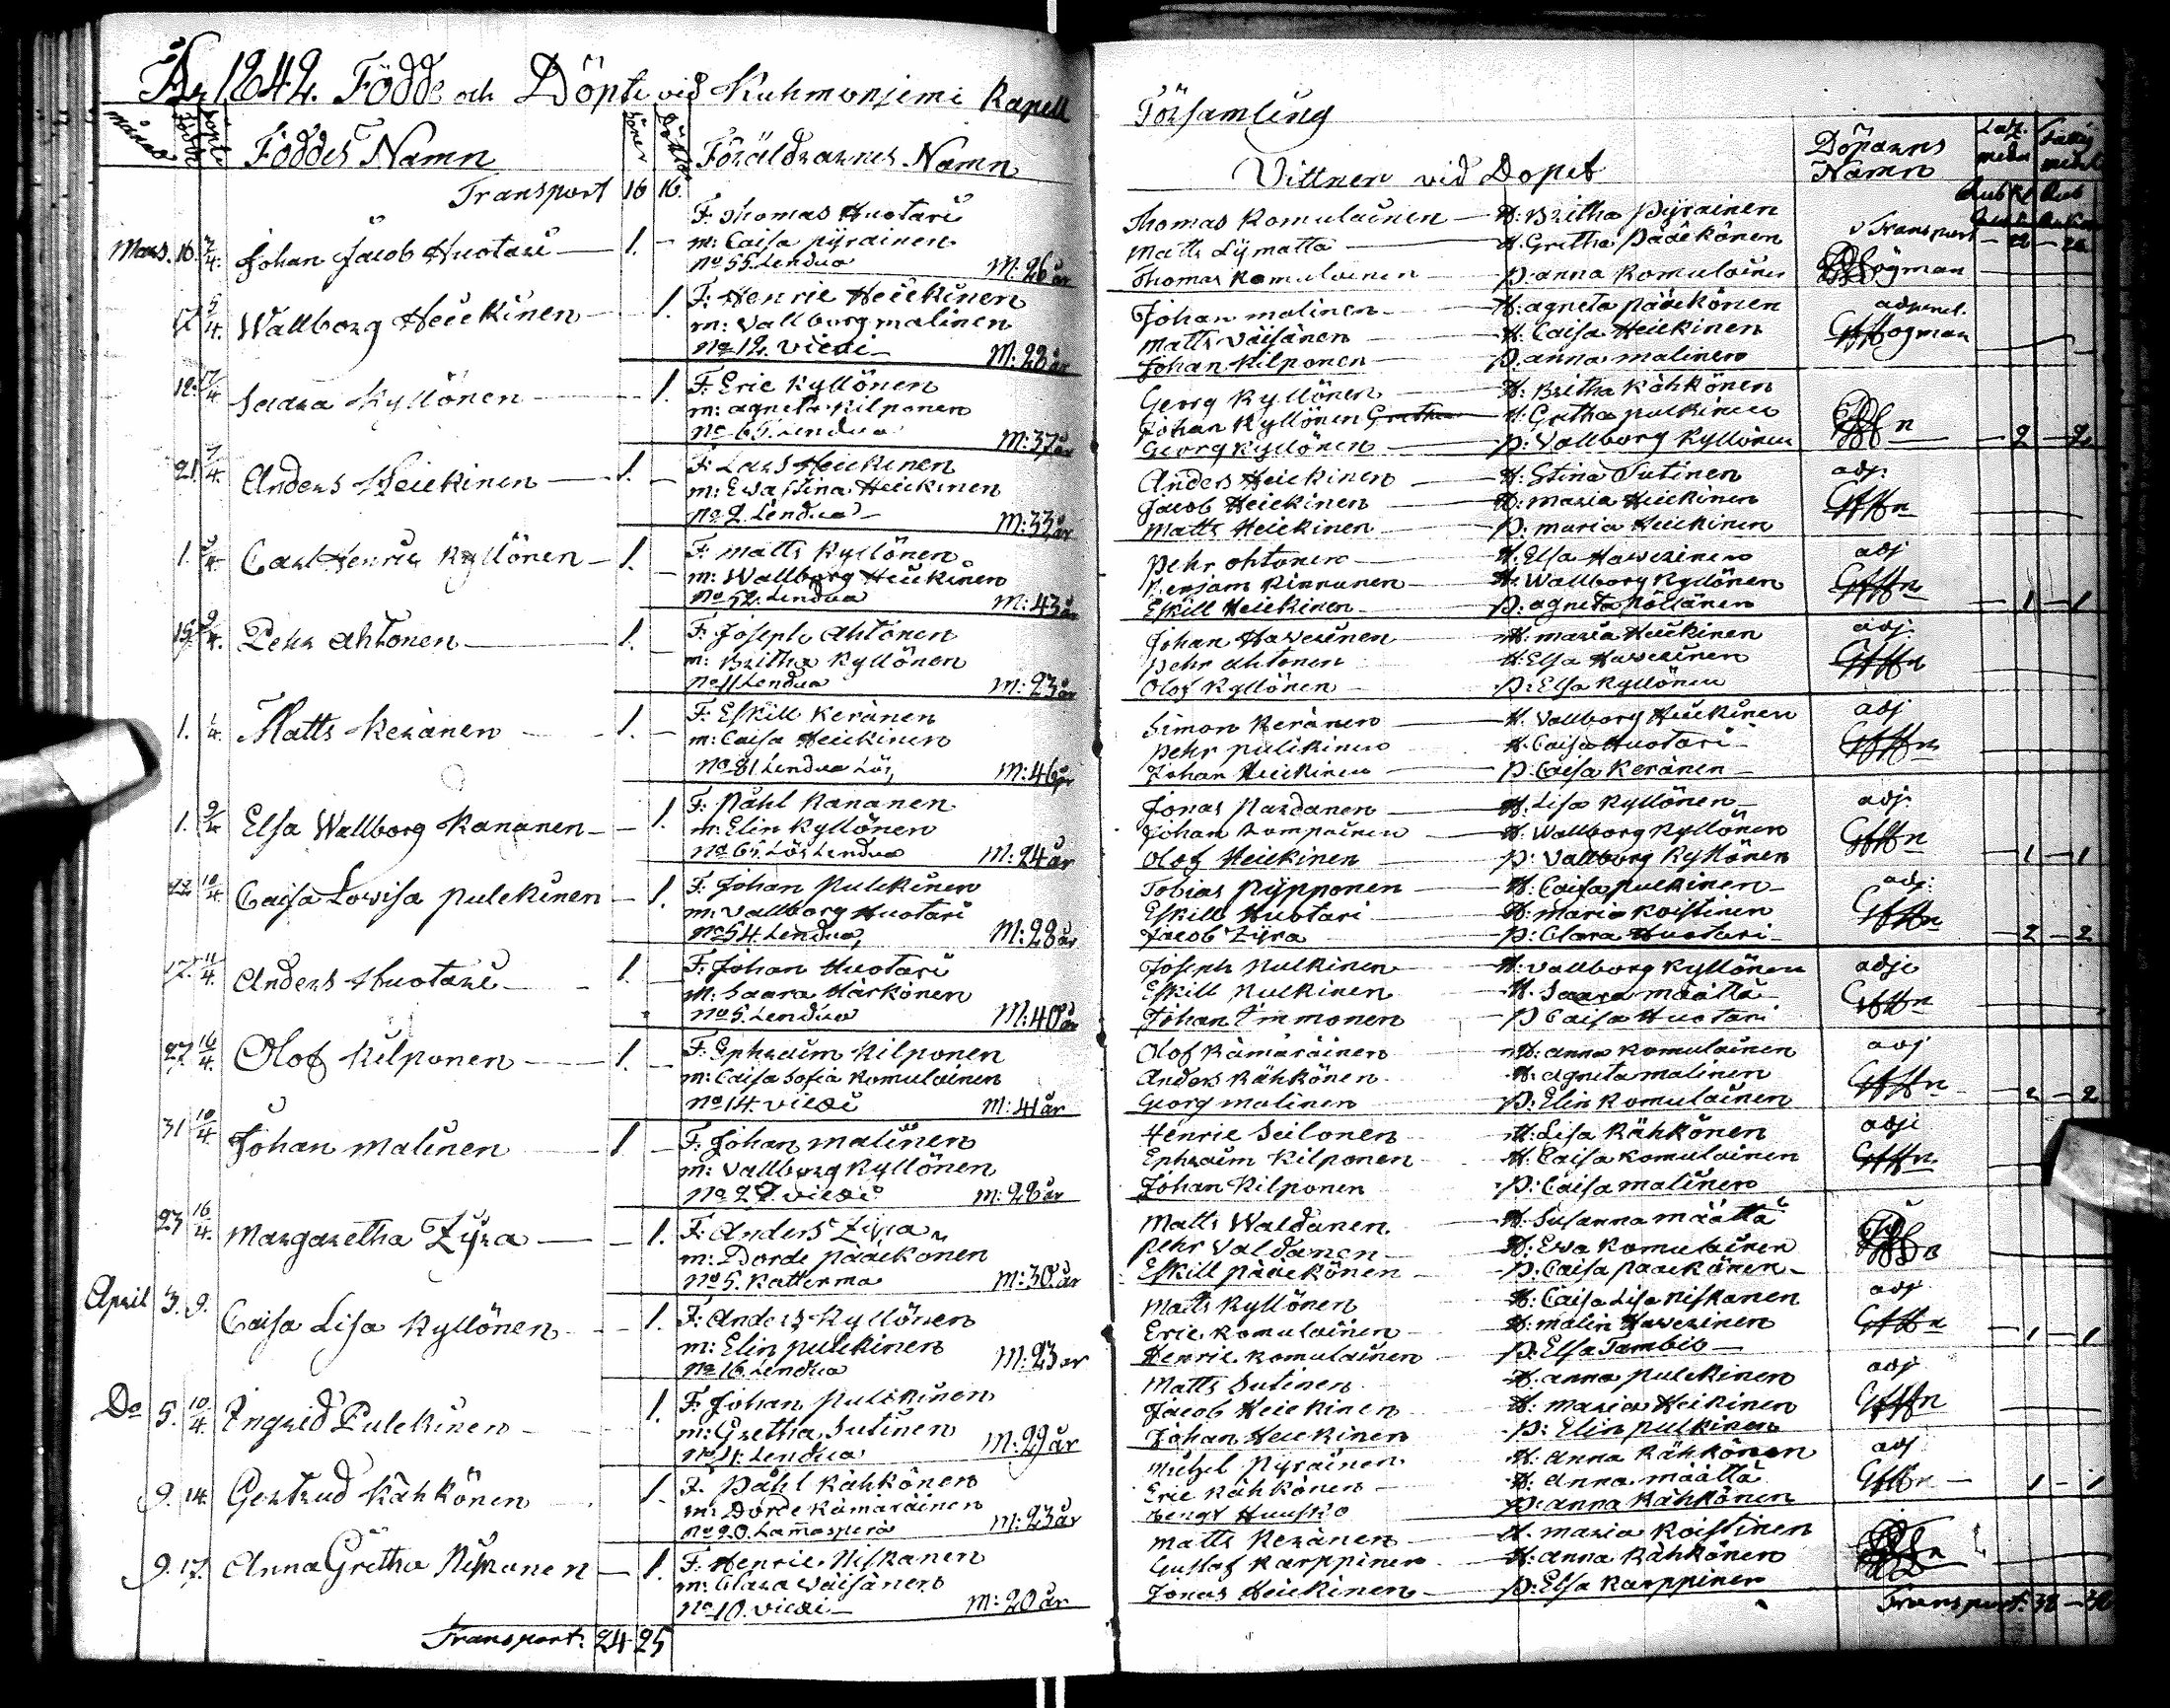 År 1842. Födde och Döpte vid Kuhmoniemi Kapell
Församling
månad Födde Döpte Föddes Namn Söner Döttrar Föräldrarnes Namn
Vittnen vid Dopet Döparns Namn
Transport 16 16.
Transport 22 22
Mars. 16. 2/4. Johan Jacob Huotari 1.
F: Thomas Huotari
m: Caisa pyrainen
No 55. Lendua M: 26 år
Thomas Komulainen H: Britha Pyrainen
Matts Lymatta H. Gretha Pääkönen
Thomas Komulainen p. anna Komulainen
Högman
17 5/4. Wallborg Heickinen 1.
F: Henric Heickinen
m: Vallborg malinen
No 12. Viexi M: 28 år
Johan malinen H: agneta pääkönen
Matts Väisänen H. Caisa Heickinen
Johan Kilponen p. anna malinen
Hogman
18. 17/4 Saara Kyllönen 1.
F: Eric Kyllönen
m: agneta Kilponen
No 65. Lendua M: 37 år
Georg Kyllönen H: Britha Kähkönen
Johan Kyllönen H: Gretha pulkinen
Georg Kyllönen p: Vallborg Kyllönen
2 2
21. 7/4. Anders Heickinen 1.
F: Lars Heickinen
m: Eva Stina Heickinen
No 2. Lendua M: 33 år
Anders Heickinen H: Stina Sutinen
Jacob Heickinen H: maria Heickinen
Matts Heickinen p: maria Heickinen
adj.
1. 3/4. Carl Henric Kyllönen 1.
F: matts Kyllönen
m: Wallborg Heickinen
No 52. Lendua M: 43 år
Pehr Ohtonen H. Elsa Haverinen
Benjam Kinnunen H: Wallborg Kyllönen
Eskill Heickinen p: agneta pöllänen
adj
1 1
15. 9/4. Pehr Ahtonen 1.
F: Joseph Ahtonen
m: Britha Kyllönen
No 11 Lendua M: 23 år
Johan Haverinen H: maria Heickinen
pehr ahtonen H: Elsa Haverinen
Olof Kyllönen p: Elsa Kyllönen
adj.
1. 4. Matts Keränen 1.
F: Eskill Keränen
m: Caisa Heickinen
No 81 Lendua Lös M: 46 år
Simon Keränen H. Vallborg Heickinen
pehr pulkinen H. Caisa Huotari
Johan Heickinen p. Caisa Keränen
adj
1. 9/4 Elsa Wallborg Kananen 1.
F: Påhl Kananen
m: Elin Kyllönen
No 65. Lös Lendua M: 24 år
Jonas Pardanen H. Lisa Kyllönen
Johan Lompainen H: Wallborg Kyllönen
Olof Heickinen p: Vallborg Kyllönen
adj.
1 1
22 10/4 Caisa Lovisa pulckinen 1.
F: Johan Pulckinen
m: Vallborg Huotari
No 54. Lendua M: 28 år
Tobias Pypponen H: Caisa pulkinen
Eskill Huotari H: maria Koistinen
Jacob Zyra p: Clara Huotari
adj.
2 2
17. 11/4. Anders Huotari 1.
F: Johan Huotari
m: Saara Härkönen
No 5. Lendua M: 40 år
Joseph Pulkinen H: Vallborg Kyllönen
Eskill Pulkinen H. Saara määttä
Johan Timmonen p Caisa Huotari
27. 16/4. Olof Kilponen 1.
F: Ephraim Kilponen
m: Caisa Sofia Komulainen
No 14. viexi M: 41 år
Olof Kämäräinen H: anna Komulainen
Anders Kähkönen H: agneta malinen
Georg malinen p: Elin Komulainen
adj
2 2
31 10/4 Johan Malinen 1
F: Johan malinen
m: Vallborg Kyllönen
No 27. viexi m: 28 år
Henric Seilonen H: Lisa Kähkönen
Ephraim Kilponen H: Caisa Komulainen
Johan Kilponen p: Caisa malinen
23 16/4. Margaretha Zyra 1.
F: Anders Zyra
m: Dorde pääkonen
No 5. Katterma m: 30. år
Matts Waldanen H: Susanna määttä
Pehr Valdanen H: Eva Komulainen
Eskill pääkönen p: Caisa pääkönen
April 3. 9. Caisa Lisa Kyllönen 1.
F: Anders Kyllönen
m: Elin pulckinen
No 16. Lendua M: 23 år
Matts Kyllönen H: Caisa Lisa Niskanen
Eric Komulainen H: malin Haverinen
Henric Komulainen p. Elsa Tambio
adj
1 1
Do 5. 10/4. Ingrid Pulckinen 1.
F: Johan Pulckinen
m: Gretha Sutinen
No 11. Lendua M: 29 år
Matts Sutinen H. anna pulckinen
Jacob Heickinen H: maria Heikinen
Johan Heickinen p: Elin pulkinen
adj
9. 14. Gertrud Kähkönen 1.
F. Påhl Kähkönen
m: Dorde Kämäräinen
No 20. Lammasperä M: 23 år
Michel Pyrainen H: Anna Kähkönen
Eric Kähkönen H: Anna määttä
Bengt Huusko p: anna Kähkönen
adj
1 1
9. 17. Anna Gretha Niskanen 1.
F: Henric Niskanen
m: Clara Väisänen
No 10. viexi M: 20 år
Matts Keränen H. maria Koistinen
Gustaf Karppinen H: anna Kähkönen
Jonas Heickinen p: Elsa Karppinen
Transport: 24 25
Transport: 32 32